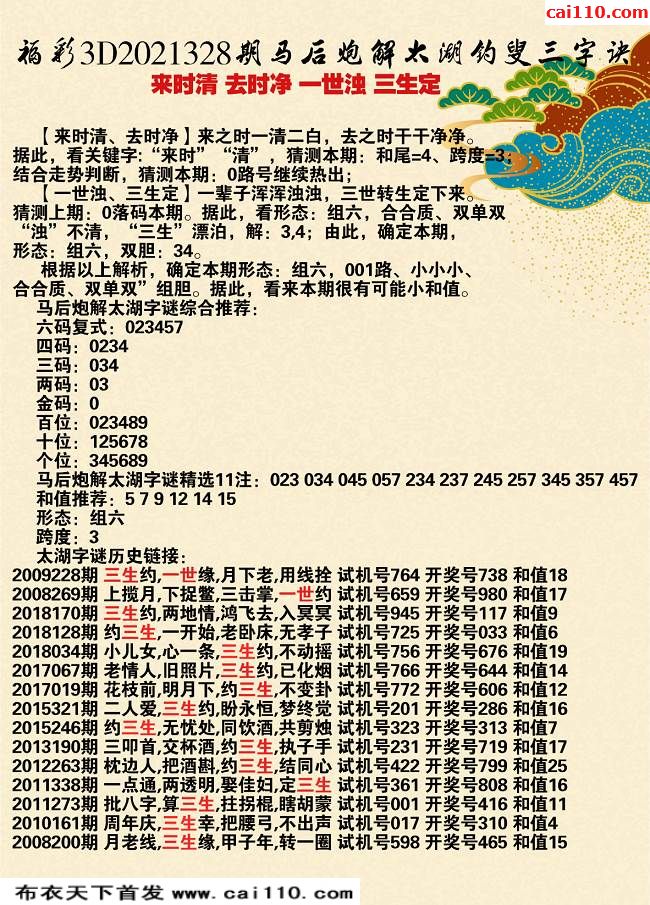 cai110.com
福彩3D2021328期马后炮解太湖钓叟三字诀
来时清 去时净 一世浊 三生定
【来时清、去时净】来之时一清二白，去之时干干净净。
据此，看关键字：“来时”“清”，猜测本期：和尾=4、跨度=3；
结合走势判断，猜测本期：0路号继续热出；
【一世浊、三生定】一辈子浑浑浊浊，三世转生定下来。
猜测上期：0落码本期。据此，看形态：组六，合合质、双单双
“浊”不清，“三生”漂泊，解：3,4；由此，确定本期，
形态：组六，双胆：34。
根据以上解析，确定本期形态：组六，001路、小小小、
合合质、双单双”组胆。据此，看来本期很有可能小和值。
马后炮解太湖字谜综合推荐：
六码复式：023457
四码：0234
三码：034
两码：03
金码：0
百位：023489
十位：125678
个位：345689
马后炮解太湖字谜精选11注：023 034 045 057 234 237 245 257 345 357 457
和值推荐：5 7 9 12 14 15
形态：组六
跨度：3
太湖字谜历史链接：
2009228期 三生约,一世缘,月下老,用线拴 试机号764 开奖号738 和值18
2008269期 上揽月,下捉鳖,三击掌,一世约 试机号659 开奖号980 和值17
2018170期 三生约,两地情,鸿飞去,入冥冥 试机号945 开奖号117 和值9
2018128期 约三生,一开始,老卧床,无孝子 试机号725 开奖号033 和值6
2018034期 小儿女,心一条,三生约,不动摇 试机号756 开奖号676 和值19
2017067期 老情人,旧照片,三生约,已化烟 试机号766 开奖号644 和值14
2017019期 花枝前,明月下,约三生,不变卦 试机号772 开奖号606 和值12
2015321期 二人爱,三生约,盼永恒,梦终觉 试机号201 开奖号286 和值16
2015246期 约三生,无忧处,同饮酒,共剪烛 试机号323 开奖号313 和值7
2013190期 三叩首,交杯酒,约三生,执子手 试机号231 开奖号719 和值17
2012263期 枕边人,把酒斟,约三生,结同心 试机号422 开奖号799 和值25
2011338期 一点通,两透明,娶佳妇,定三生 试机号361 开奖号808 和值16
2011273期 批八字,算三生,拄拐棍,瞎胡蒙 试机号001 开奖号416 和值11
2010161期 周年庆,三生幸,把腰弓,不出声 试机号017 开奖号310 和值4
2008200期 月老线,三生缘,甲子年,转一圈 试机号598 开奖号465 和值15
布衣天下首发 www.cai110.com